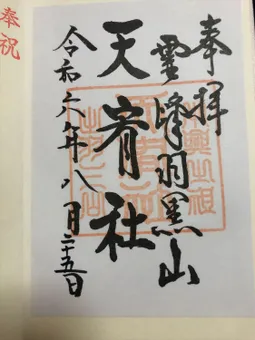 奉拝
霊峰羽黒山
天宥社
令和六年八月二十五日
奉祝